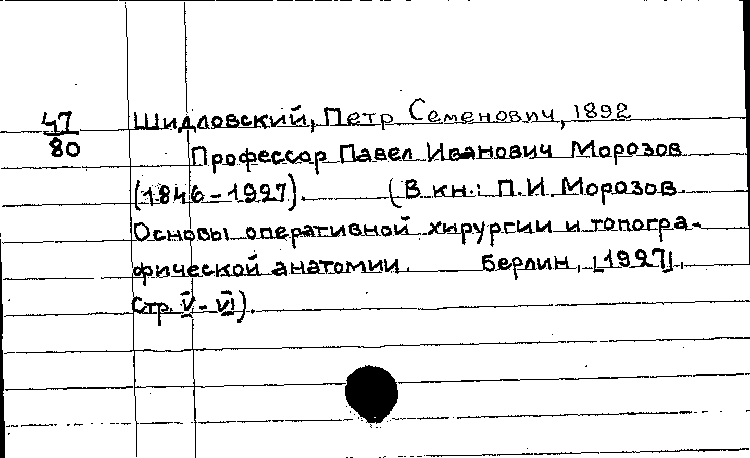 47
80
Шидловский, Петр Семенович, 1892
Профессор Павел Иванович Морозов
(1846-1927). (В кн.: П.И. Морозов.
Основы оперативной хирургии и топогра-
фической анатомии. Берлин, [1927],
Стр. V-VI).